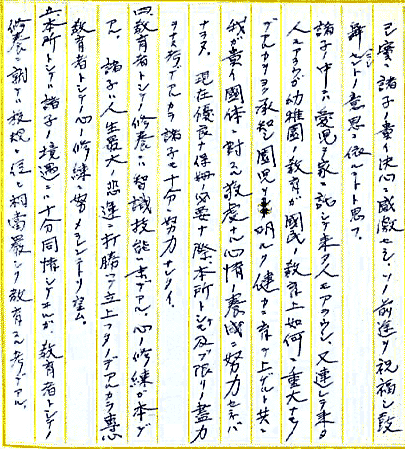 己ニ寔ニ諸子ノ貴イ決心ニ感激セシ、ソノ前途ヲ祝福シ鼓
舞シヨウトノ意思ニ依ルコトト思フ。
諸子ノ中ニハ愛児ヲ家ニ託シテ来タ人モアラウシ、又連レテ来タ
人モアラウガ幼稚園ノ教育ガ國民ノ教育上如何ニ重大ナモノ
デアルカヲヨク承知シ園児ヲ明ルク健カニ育テ上ゲルト共ニ
我ガ貴イ國体ニ対スル敬虔ナル心情ノ養成ニ努力セネバ
ナラヌ。現在優良ナ保姆ノ必要ナ際、本所トシテモ及ブ限リノ盡力
ヲナス考デアルカラ諸子モ十分努力ナサイ。
四、教育者トシテノ修養ハ智識技能ハ末デアル、心ノ修練ガ本デ
アル、諸子ハ人生最大ノ悲運ニ打勝ツテ立上ツタノデアルカラ専心
教育者トシテノ心ノ修練ニ努メラレンコトヲ望ム。
五、本所トシテハ諸子ノ境遇ニハ十分同情シテヰルガ、教育者トシテノ
修養ニ就テハ校規ニ従ヒ相當嚴シク教育スル考デアル。